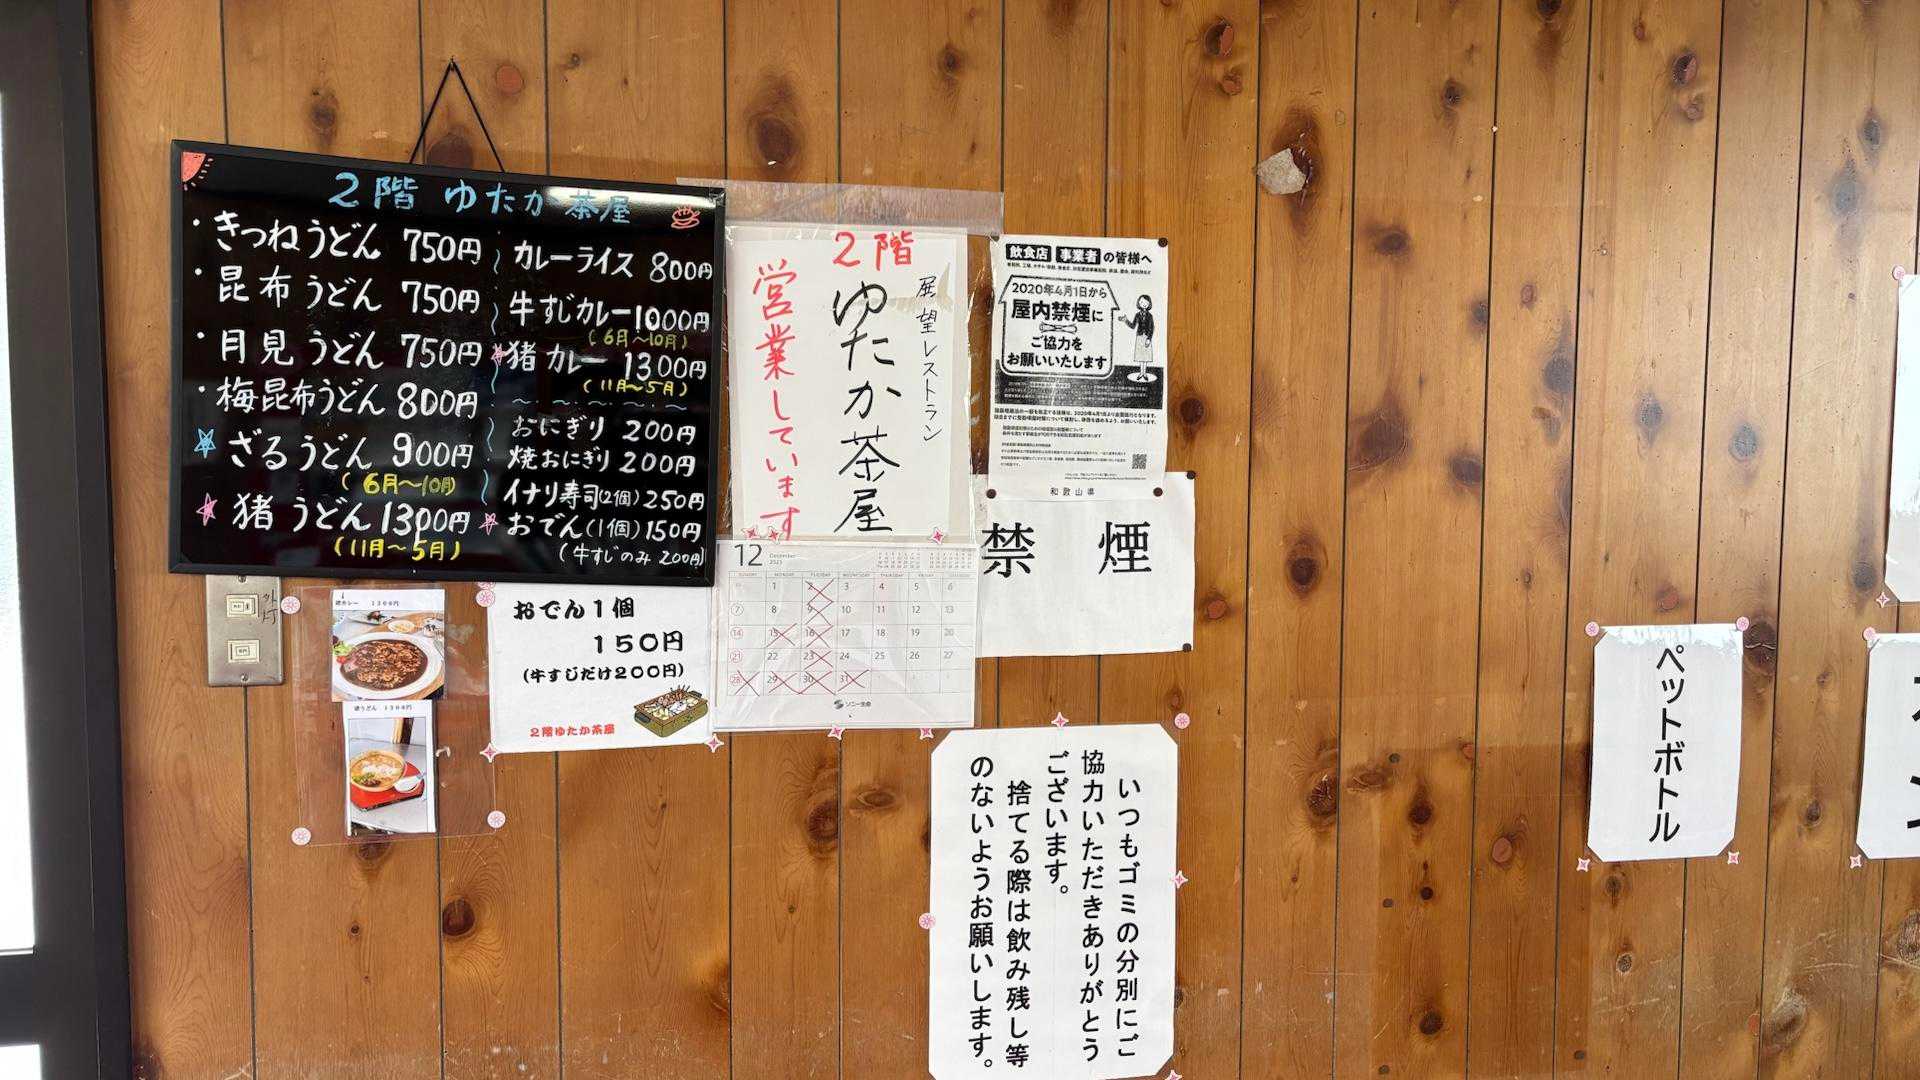 2階 ゆたか茶屋
・きつねうどん 750円
・昆布うどん 750円
・月見うどん 750円
・梅昆布うどん 800円
ざるうどん 900円
(6月〜10月)
猪うどん 1300円
(11月〜5月)
カレーライス 800円
牛すじカレー 1000円
(6月〜10月)
猪カレー 1300円
(11月〜5月)
おにぎり 200円
焼おにぎり 200円
イナリ寿司(2個) 250円
おでん(1個) 150円
(牛すじのみ 200円)
2階
展望レストラン
ゆたか茶屋
営業しています
飲食店 事業者 の皆様へ
2020年4月1日から
屋内禁煙に
ご協力を
お願いいたします
和歌山県
禁 煙
外灯
猪カレー 1300円
猪うどん 1300円
おでん1個
150円
(牛すじだけ200円)
2階ゆたか茶屋
12 December
SUNDAY MONDAY TUESDAY WEDNESDAY THURSDAY FRIDAY SATURDAY
1 2 3 4 5 6
7 8 9 10 11 12 13
14 15 16 17 18 19 20
21 22 23 24 25 26 27
28 29 30 31
ソニー生命
いつもゴミの分別にご
協力いただきありがとう
ございます。
捨てる際は飲み残し等
のないようお願いします。
ペットボトル